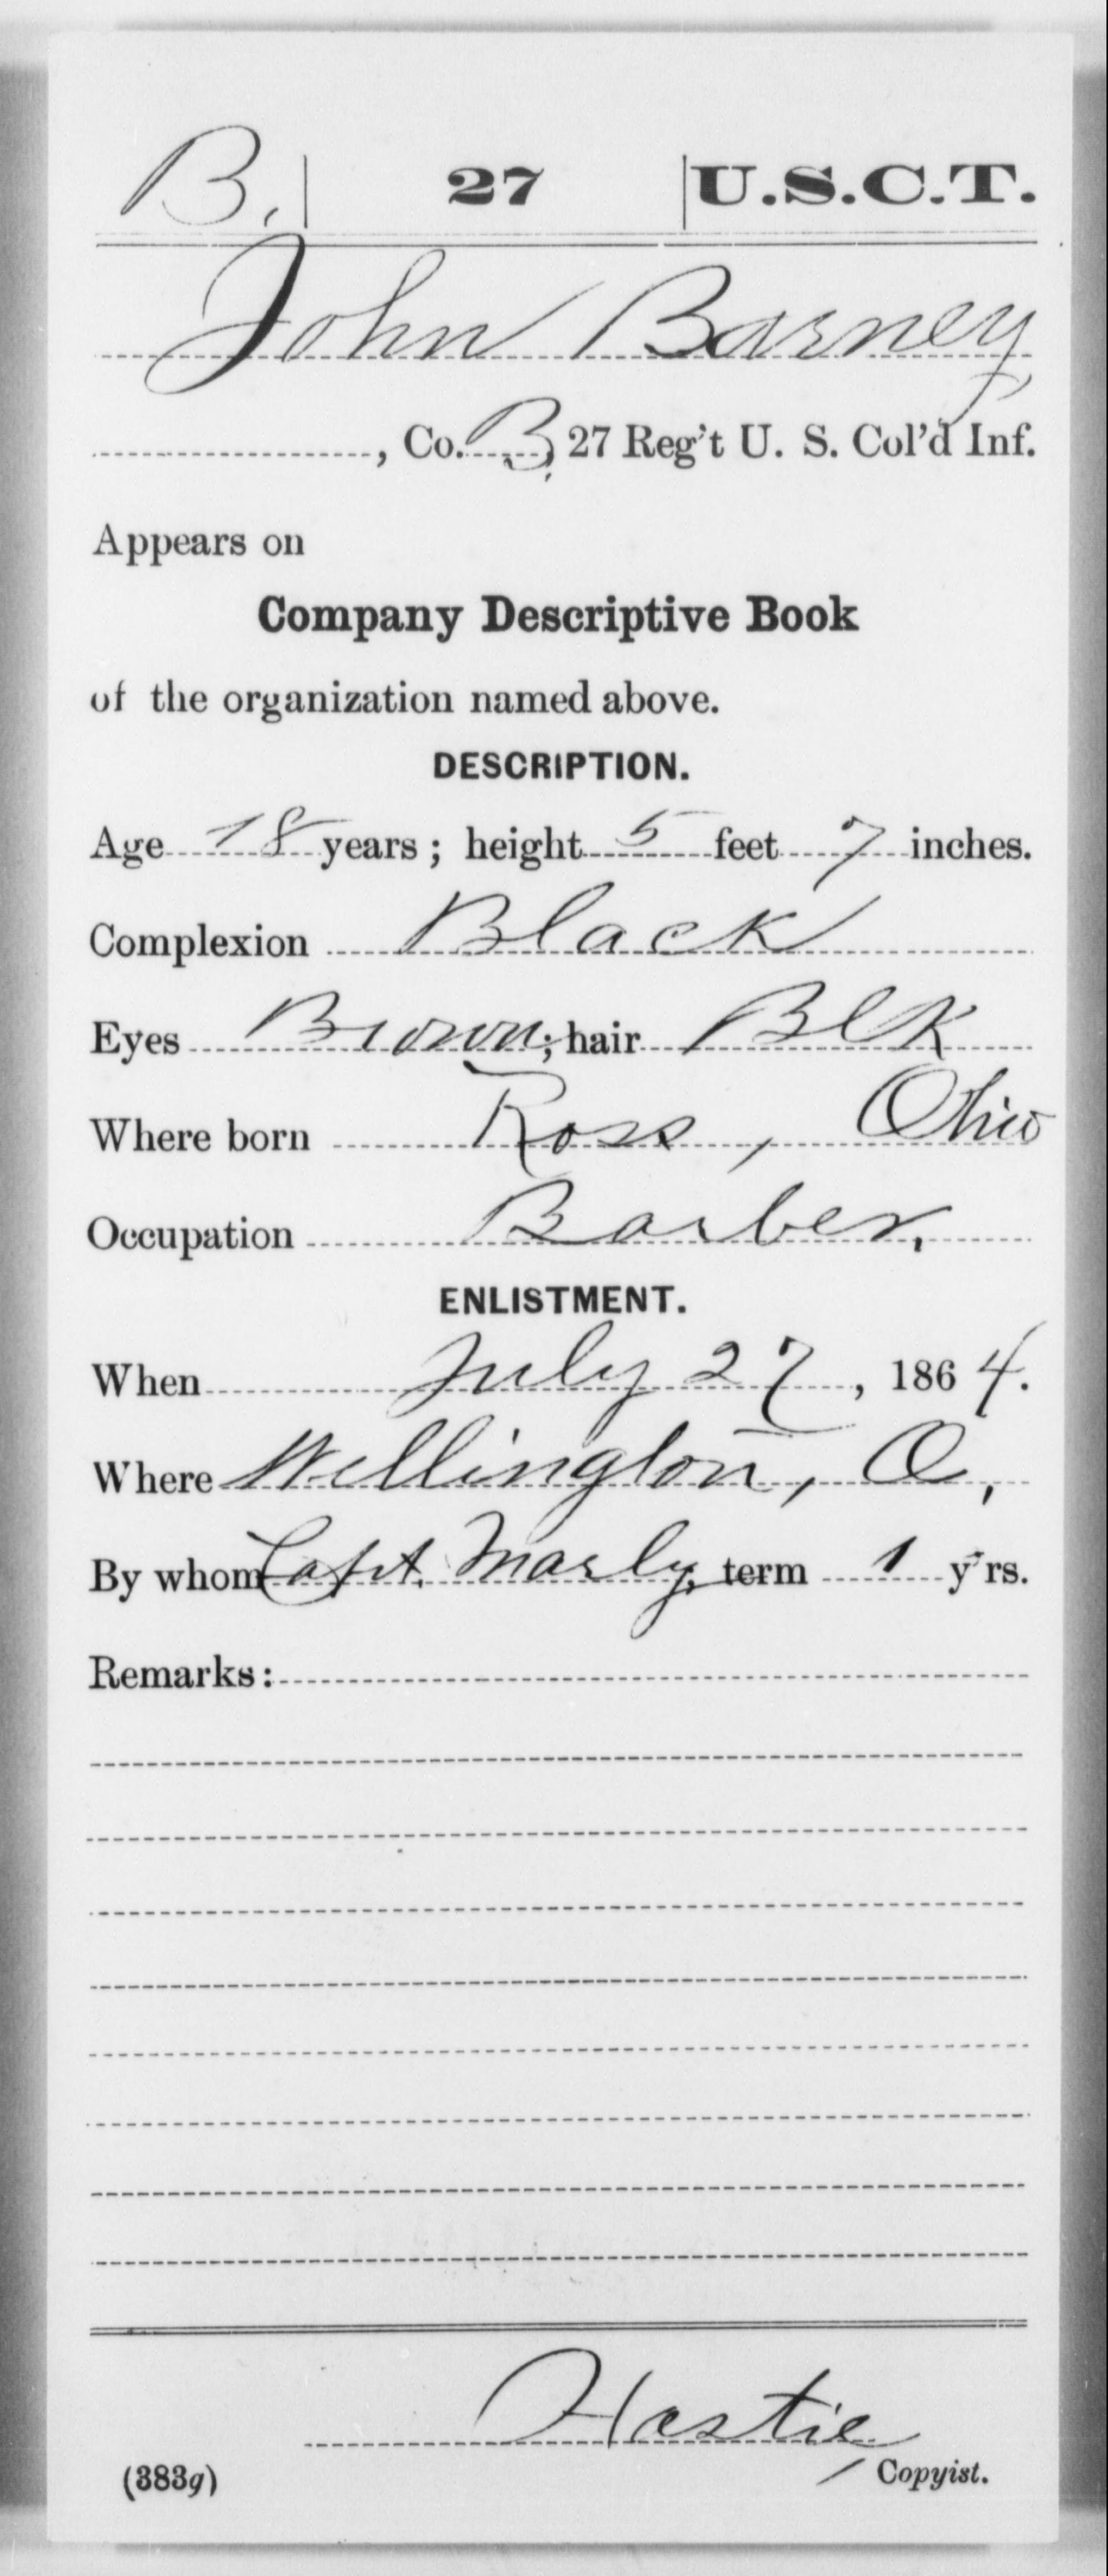 B. 27 U.S.C.T.
John Barney
, Co. B, 27 Reg't U. S. Col'd Inf.
Appears on
Company Descriptive Book
of the organization named above.
DESCRIPTION.
Age 18 years; height 5 feet 7 inches.
Complexion Black
Eyes Brown; hair Blk
Where born Ross, Ohio
Occupation Barber,
ENLISTMENT.
When July 27, 1864.
Where Wellington, O,
By whom Capt. Marly, term 1 y'rs.
Remarks:
Hastie
(383g) Copyist.